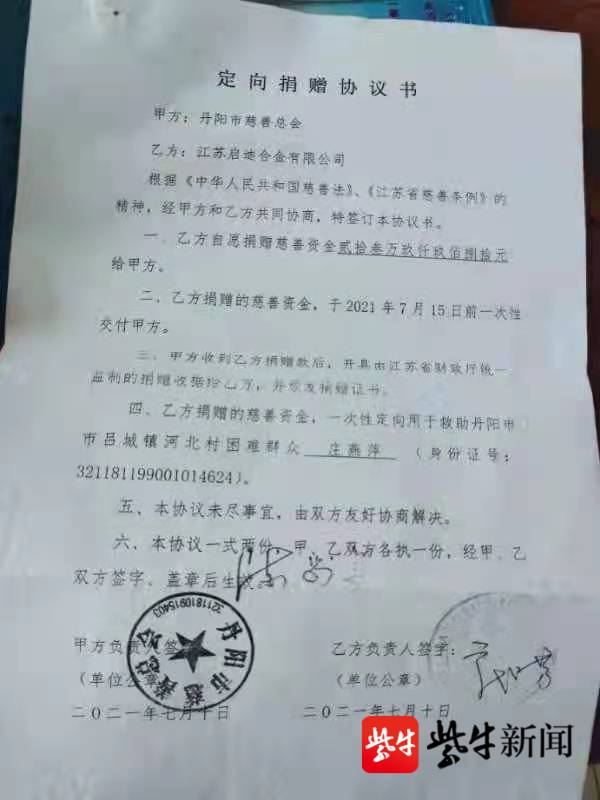 定向捐赠协议书
甲方：丹阳市慈善总会
乙方：江苏启迪合金有限公司
根据《中华人民共和国慈善法》、《江苏省慈善条例》的
精神，经甲方和乙方共同协商，特签订本协议书。
一、乙方自愿捐赠慈善资金贰拾叁万玖仟玖佰捌拾元
给甲方。
二、乙方捐赠的慈善资金，于2021年7月15日前一次性
交付甲方。
三、甲方收到乙方捐赠款后，开具由江苏省财政厅统一
监制的捐赠收据给乙方，并颁发捐赠证书。
四、乙方捐赠的慈善资金，一次性定向用于救助丹阳市
市吕城镇河北村困难群众 庄燕萍 （身份证号：
321181199001014624）。
五、本协议未尽事宜，由双方友好协商解决。
六、本协议一式两份，甲、乙双方各执一份，经甲、乙
双方签字、盖章后生效
甲方负责人签
乙方负责人签字：
（单位公章）
（单位公章）
二〇二一年七月十日
二〇二一年七月十日
丹阳市慈善总会
3211810915403
紫牛 紫牛新闻